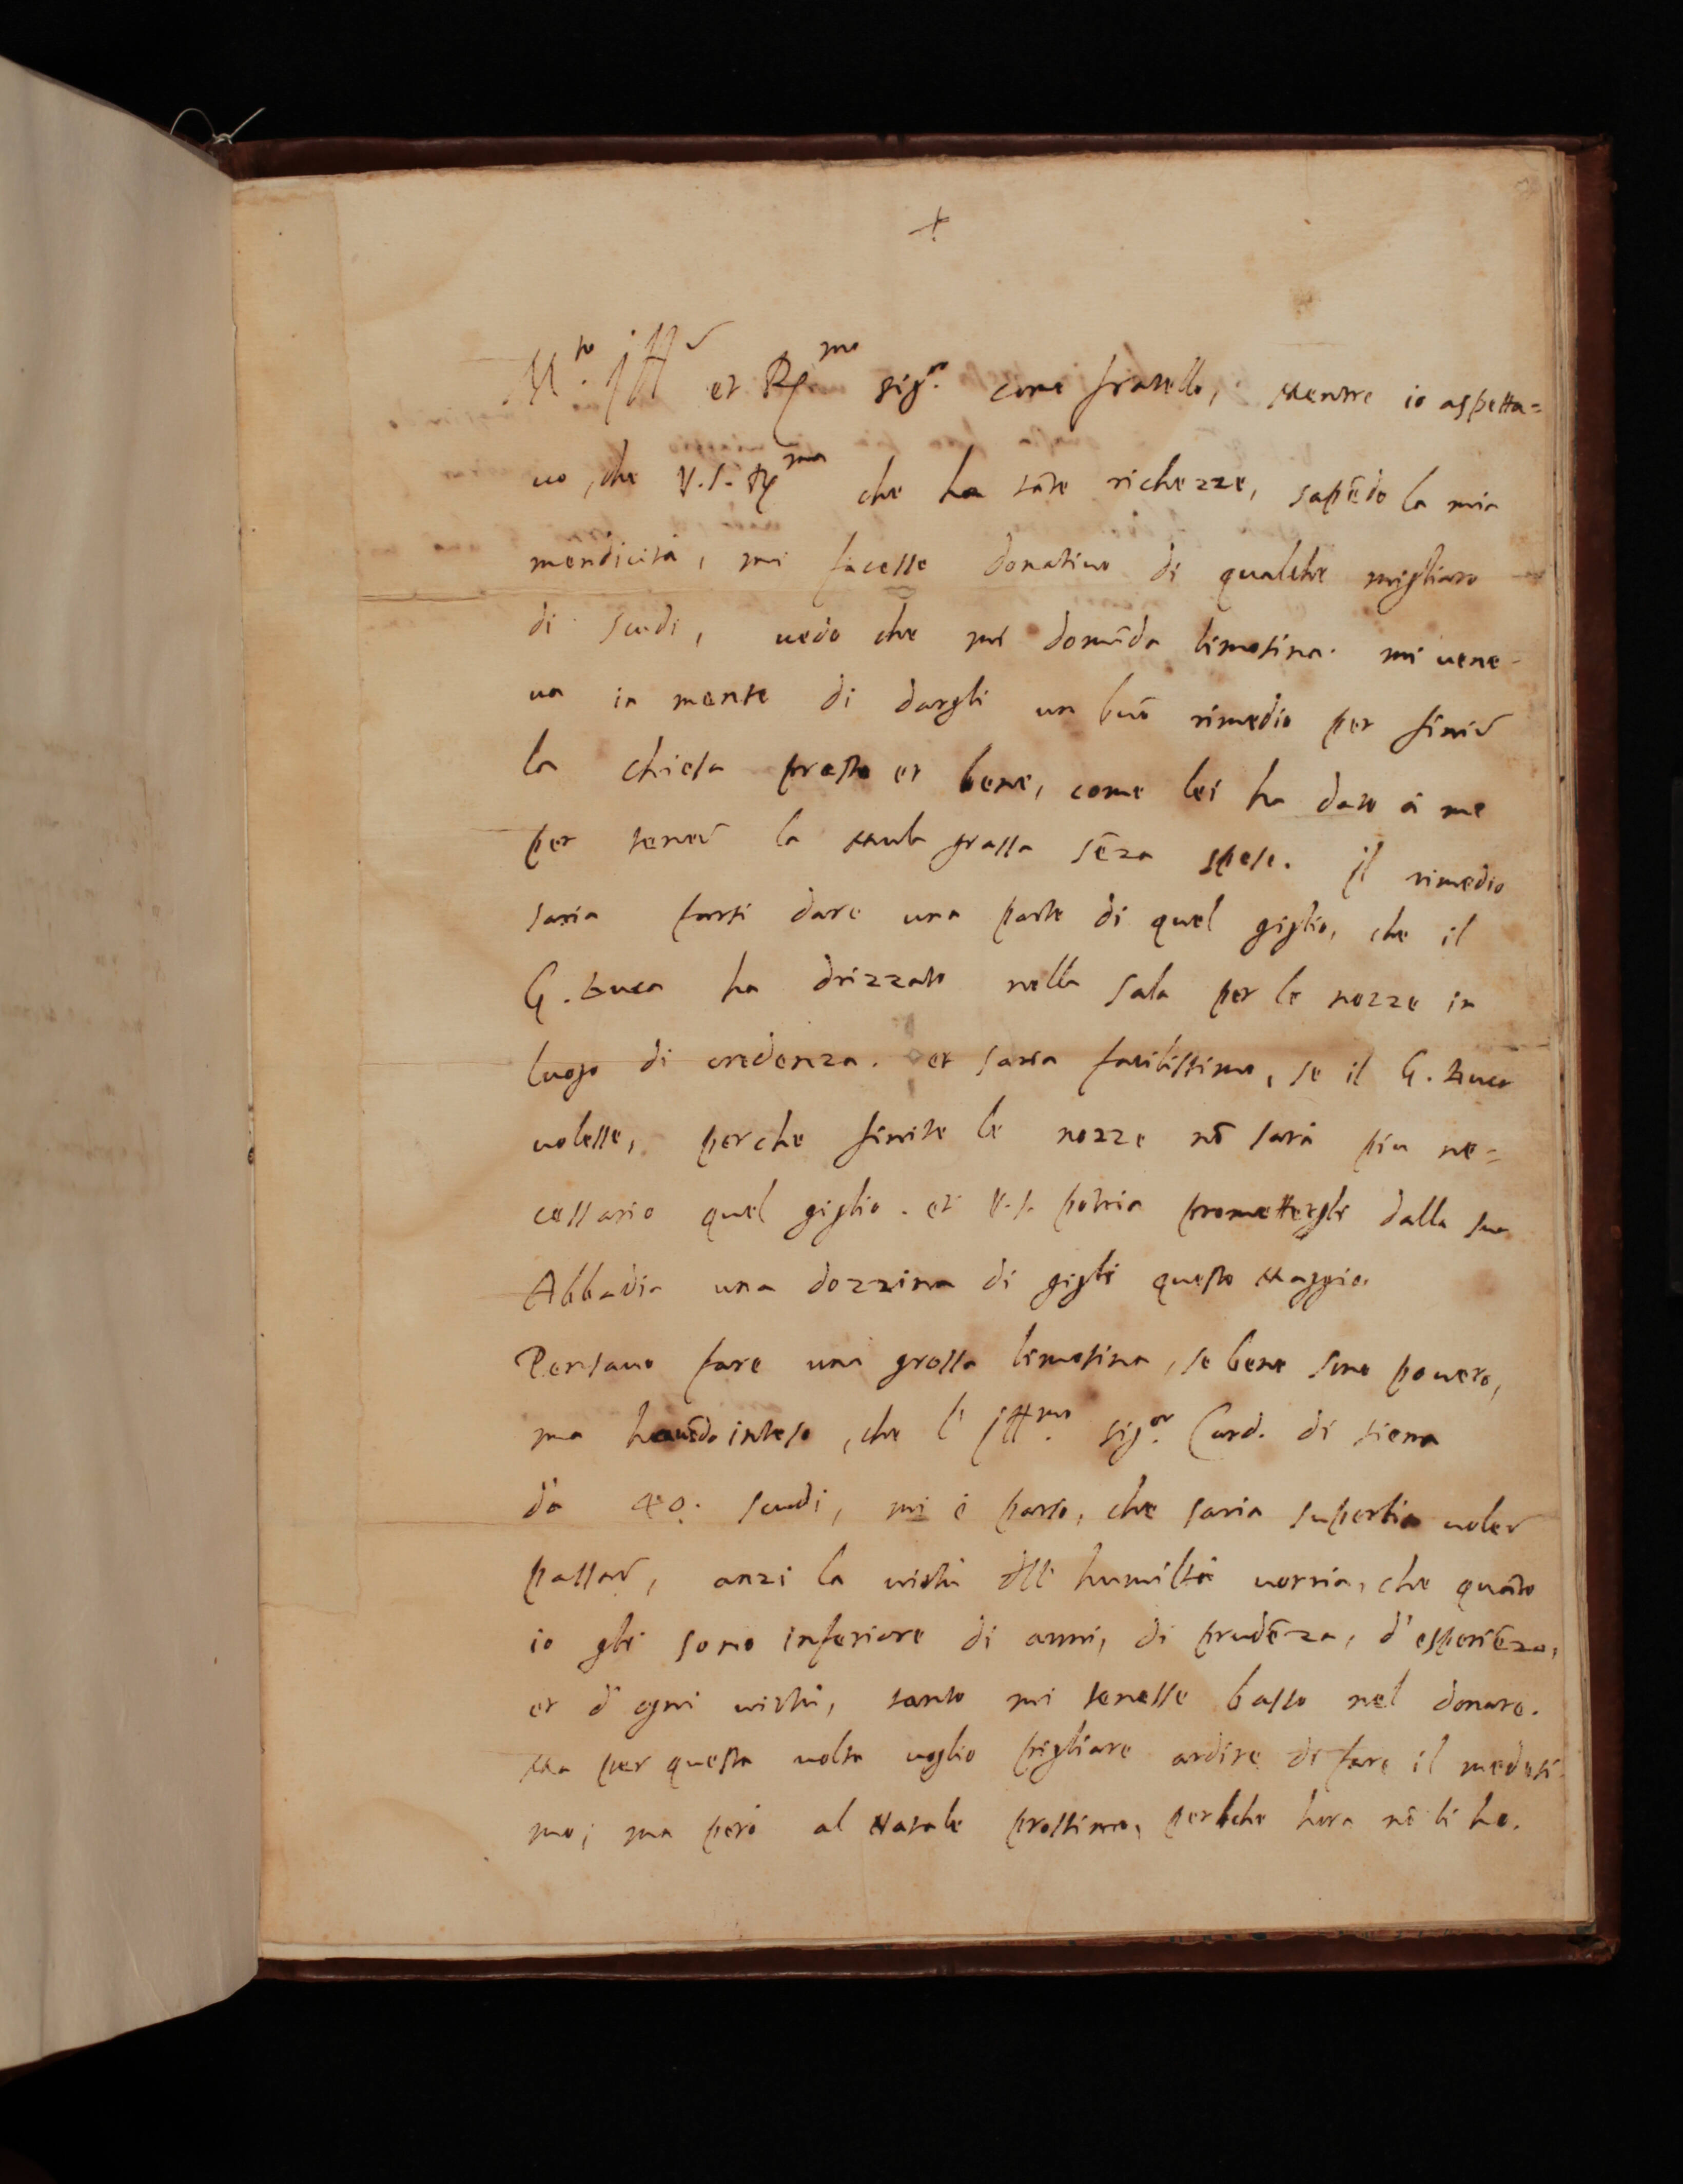 +
M.to Ill.r et R.mo sig.r come fratello, Mentre io aspetta=
uo, che V.S. R.ma che ha tāte richezze, sapēdo la mia
mendicità, mi facesse donatiuo di qualche migliaro
di scudi, uedo che mi domāda limosina. mi uene-
ua in mente di dargli un buō rimedio per finir
la chiesa presto et bene, come lei ha dato à me
per tener la mula grassa sēza spese. Il rimedio
saria farsi dare una parte di quel giglio, che il
G. Duca ha drizzato nella sala per le nozze in
luogo di credenza. et saria facilissimo, se il G. Duca
uolesse, perche finite le nozze nō sarà piu ne=
cessario quel giglio. et V.S. potria prometterghi dalla sua
Abbadia una dozzina di gigli questo Maggio.
Pensauo fare una grossa limosina, se bene sono pouero,
ma hauēdo inteso, che l' Ill.mo sig.or Card. di siena
dà 40. scudi, mi è parso, che saria superbia uoler
passar, anzi la uirtù dell' humiltà uorria, che quāto
io gli sono inferiore di anni, di prudēza, d'esperiēza,
et d'ogni uirtù, tanto mi tenesse basso nel donare.
Ma per questa uolta uoglio pigliare ardire di fare il medesi-
mo; ma però al Natale prossimo, perche hora nō li ho.